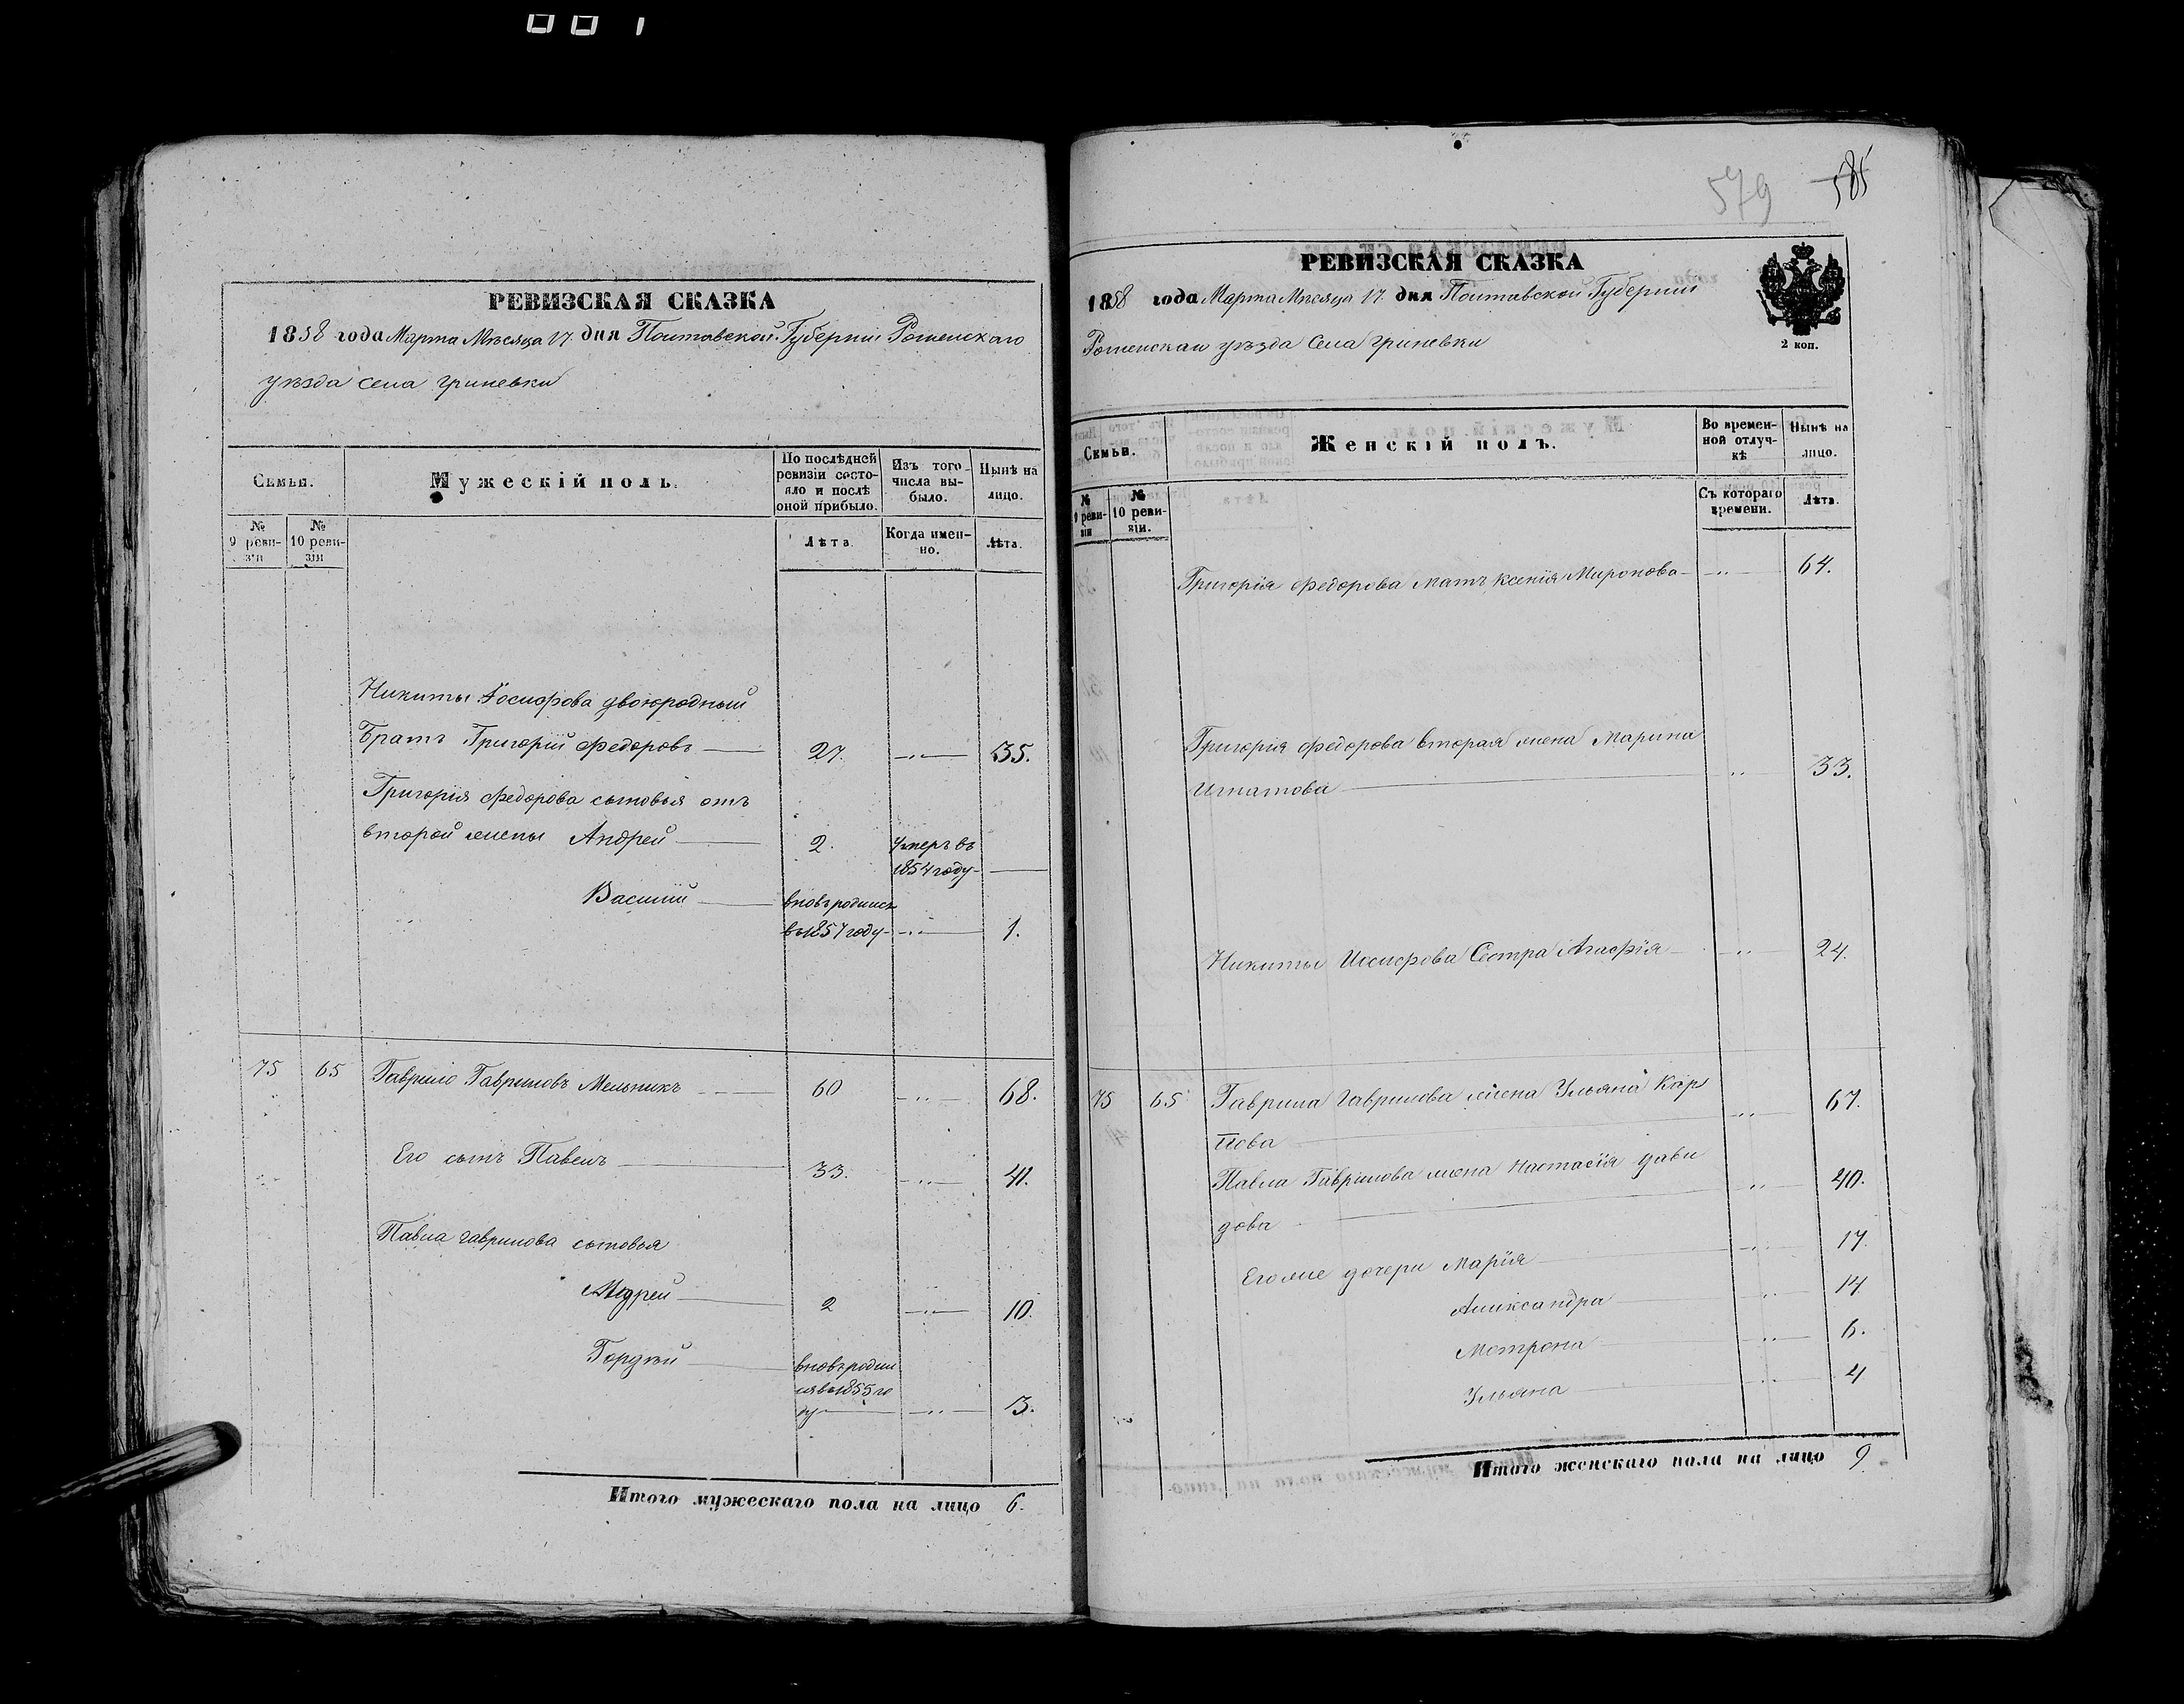 РЕВИЗСКАЯ СКАЗКА
1858 года Марта Мѣсяца 17. дня Полтавской Губерніи Роменскаго
уѣзда села гриневки
Семьи.
Мужескій полъ.
По послѣдней ревизіи состояло и послѣ оной прибыло.
Изъ того числа выбыло.
Нынѣ на лицо.
№ 9 ревизіи
№ 10 ревизіи
Лѣта.
Когда именно.
Лѣта.
Никиты Іосифова двоюродный
Братъ Григорій Федоровъ 27. 35.
Григорія Федорова сыновья отъ
второй жены Андрей 2. умеръ въ
1854 году
Василій вновь родился
въ 1857 году 1.
75 65 Гаврило Гавриловъ Мельникъ 60 68.
Его сынъ Павелъ 33. 41.
Павла гаврилова сыновья
Андрей 2 10.
Гордѣй вновь родил
ся въ 1855 го
ду 3.
Итого мужескаго пола на лицо 6.
579 585
РЕВИЗСКАЯ СКАЗКА
1858 года Марта Мѣсяца 17. дня Полтавской Губерніи
Роменскаго уѣзда Села гриневки
2 коп.
Семьи.
Женскій полъ.
Во временной отлучкѣ
Нынѣ на лицо.
№ 9 ревизіи
№ 10 ревизіи.
Съ котораго времени.
Лѣта.
Григорія Федорова мать Ксенія Миронова 64.
Григорія Федорова вторая жена Марина
Игнатова 33.
Никиты Иосифова Сестра Агафія 24.
75 65 Гаврила Гаврилова жена Ульяна Кар 67.
пова
Павла Гаврилова жена Настасія дави 40.
дова
Его же дочери Марія 17.
Аликсандра 14
Мотрона 6.
Ульяна 4
Итого женскаго пола на лицо 9.